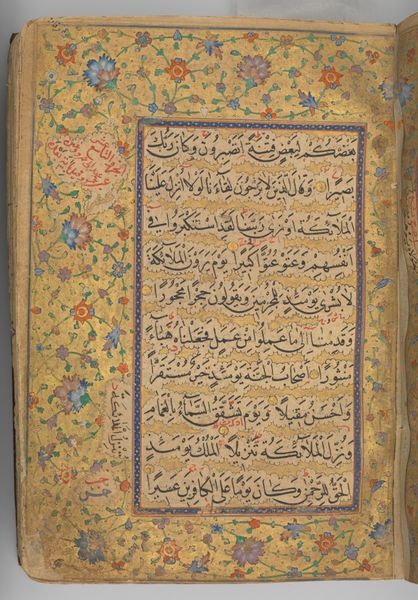 بَعْضَكُمْ لِبَعْضٍ فِتْنَةً أَتَصْبِرُونَ وَكَانَ رَبُّكَ
بَصِيرًا وَقَالَ الَّذِينَ لَا يَرْجُونَ لِقَاءَنَا لَوْلَا أُنْزِلَ عَلَيْنَا
الْمَلَائِكَةُ أَوْ نَرَى رَبَّنَا لَقَدِ اسْتَكْبَرُوا فِي
أَنْفُسِهِمْ وَعَتَوْ عُتُوًّا كَبِيرًا يَوْمَ يَرَوْنَ الْمَلَائِكَةَ
لَا بُشْرَى يَوْمَئِذٍ لِلْمُجْرِمِينَ وَيَقُولُونَ حِجْرًا مَحْجُورًا
وَقَدِمْنَا إِلَى مَا عَمِلُوا مِنْ عَمَلٍ فَجَعَلْنَاهُ هَبَاءً
مَنْثُورًا أَصْحَابُ الْجَنَّةِ يَوْمَئِذٍ خَيْرٌ مُسْتَقَرًّا
وَأَحْسَنُ مَقِيلًا وَيَوْمَ تَشَقَّقُ السَّمَاءُ بِالْغَمَامِ
وَنُزِّلَ الْمَلَائِكَةُ تَنْزِيلًا الْمُلْكُ يَوْمَئِذٍ
الْحَقُّ لِلرَّحْمَنِ وَكَانَ يَوْمًا عَلَى الْكَافِرِينَ عَسِيرًا